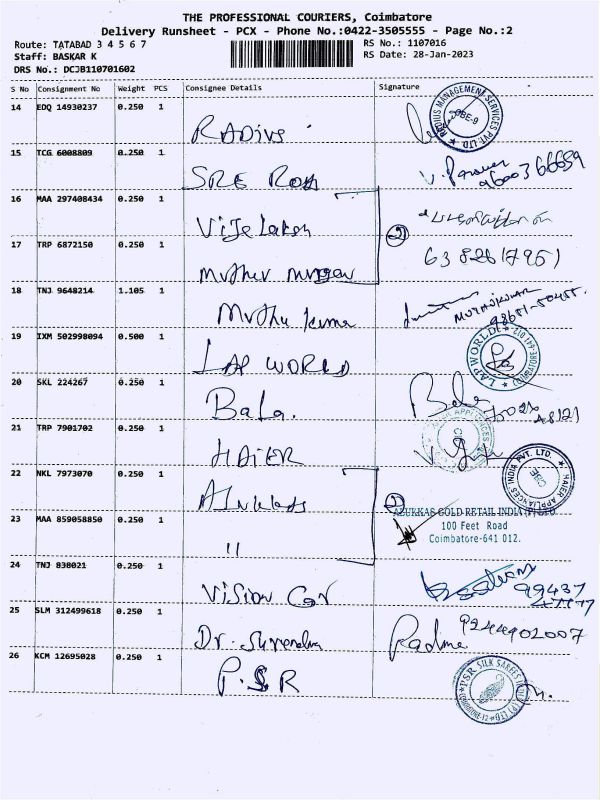 THE PROFESSIONAL COURIERS, Coimbatore
Delivery Runsheet - PCX - Phone No.:0422-3505555 - Page No.:2
Route: TATABAD 3 4 5 6 7
RS No.: 1107016
Staff: BASKAR K
RS Date: 28-Jan-2023
DRS No.: DCJB110701602
S No Consignment No Weight PCS Consignee Details Signature
14 EDQ 14930237 0.250 1
RADIUS
RADIUS MANAGEMENT SERVICES PVT. LTD.
CBE-9
15 TCG 6008809 0.250 1
SRE
9600366659
16 MAA 297408434 0.250 1
Vije Laksh
2
17 TRP 6872150 0.250 1
Muthu Murugan
6382617951
18 TNJ 9648214 1.105 1
Muthu Kuma
MUTHUKUMAR
19 IXM 502998094 0.500 1
LAP WORLD
LAP WORLD
COIMBATORE-641 012
20 SKL 224267 0.250 1
Bala.
Bala
21 TRP 7901702 0.250 1
HAIER
HAIER APPLIANCES INDIA PVT. LTD.
CBE
22 NKL 7973070 0.250 1
Alukkas
2
23 MAA 859058850 0.250 1
"
ALUKKAS GOLD RETAIL INDIA (P) LTD
100 Feet Road
Coimbatore-641 012.
24 TNJ 838021 0.250 1
Vision Car
99437
25 SLM 312499618 0.250 1
Dr. Surendra
Padma 9244902007
26 KCM 12695028 0.250 1
P.S R
PSR SILK SAREES
COIMBATORE-12